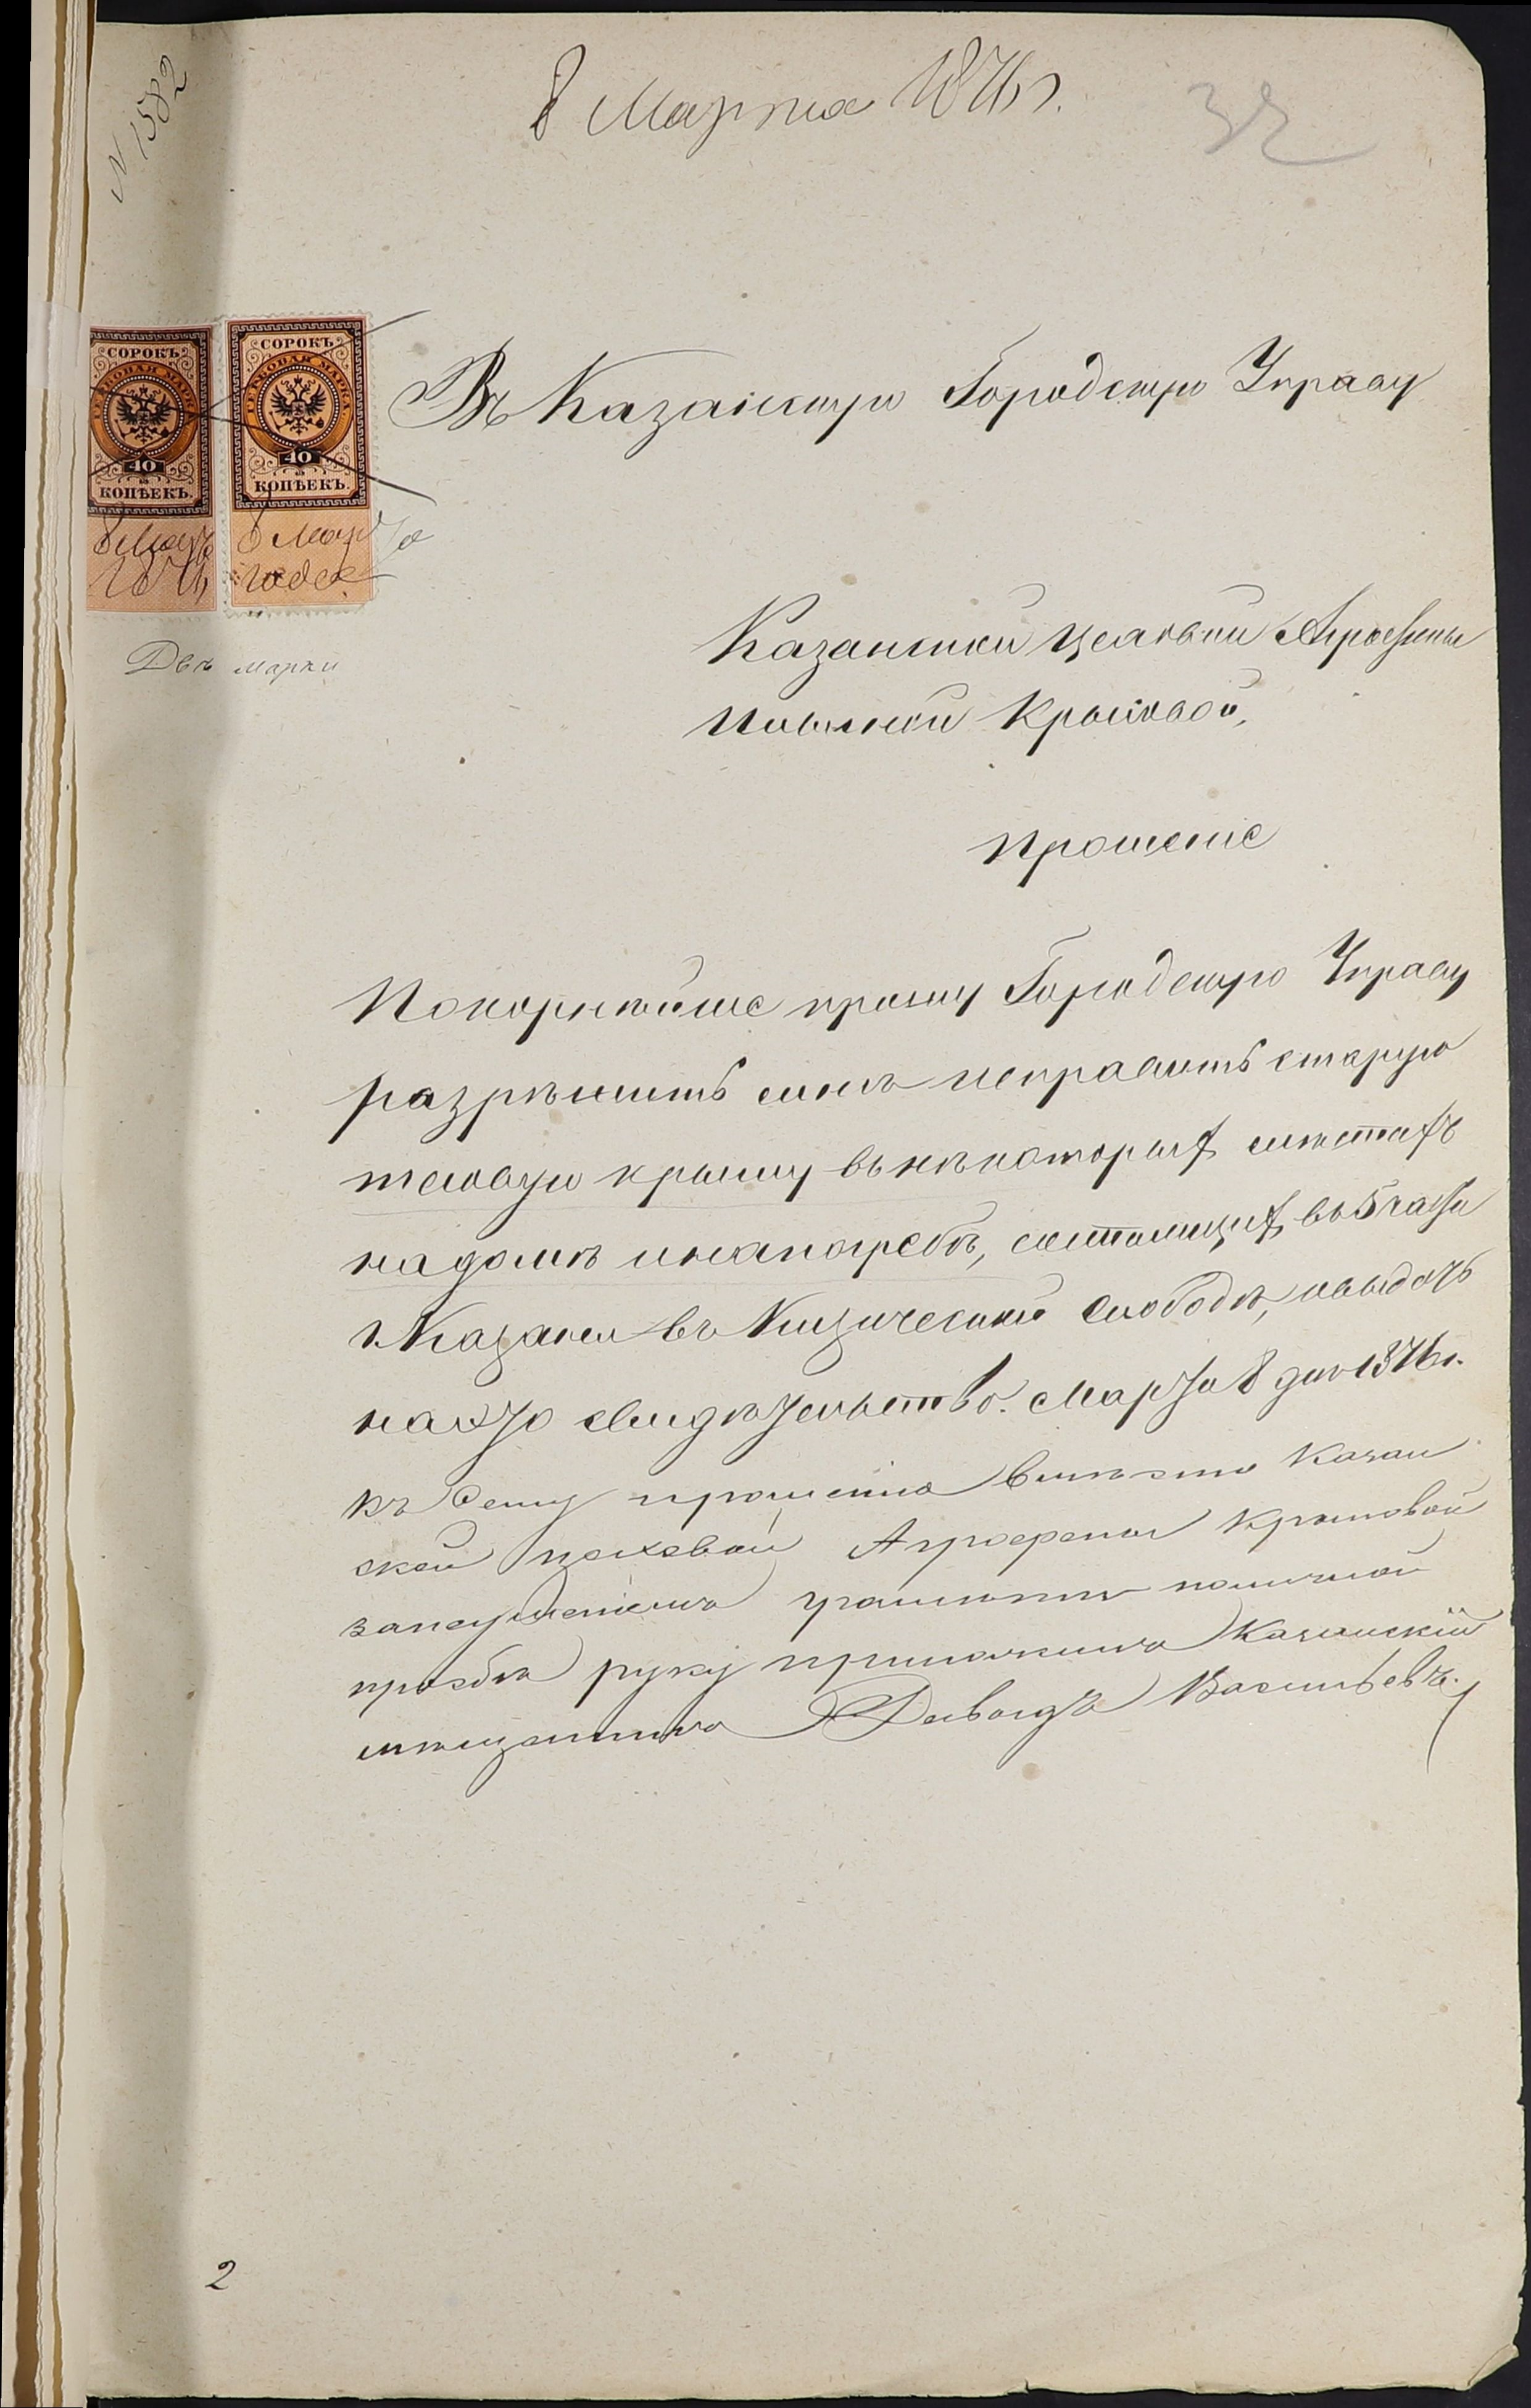 N 1582
8 Марта 1876 г.
32
СОРОКЪ
ГЕРБОВАЯ МАРКА
40
КОПѢЕКЪ.
8 Марта
1876
СОРОКЪ
ГЕРБОВАЯ МАРКА
40
КОПѢЕКЪ.
8 Марта
года
Двѣ марки
Въ Казанскую Городскую Управу
Казанской цеховой Агрофены
Крысовой,
прошение
Покорнѣйше прошу Городскую Управу
разрѣшить мнѣ исправить старую
тесовую крышу въ нѣкоторых мѣстахъ
на домѣ и на погребѣ, состоящих въ 5 части
г. Казани въ Кизической Слободѣ, и выдать
на это свидѣтельство. Марта 8 дня 1876 г.
Къ сему прошенію вмѣсто Казан
ской цеховой Агрофены Крысовой
грамоты по личной
прозбѣ руку приложилъ Казанскій
мѣщанинъ Давыдъ Васильевъ.
2